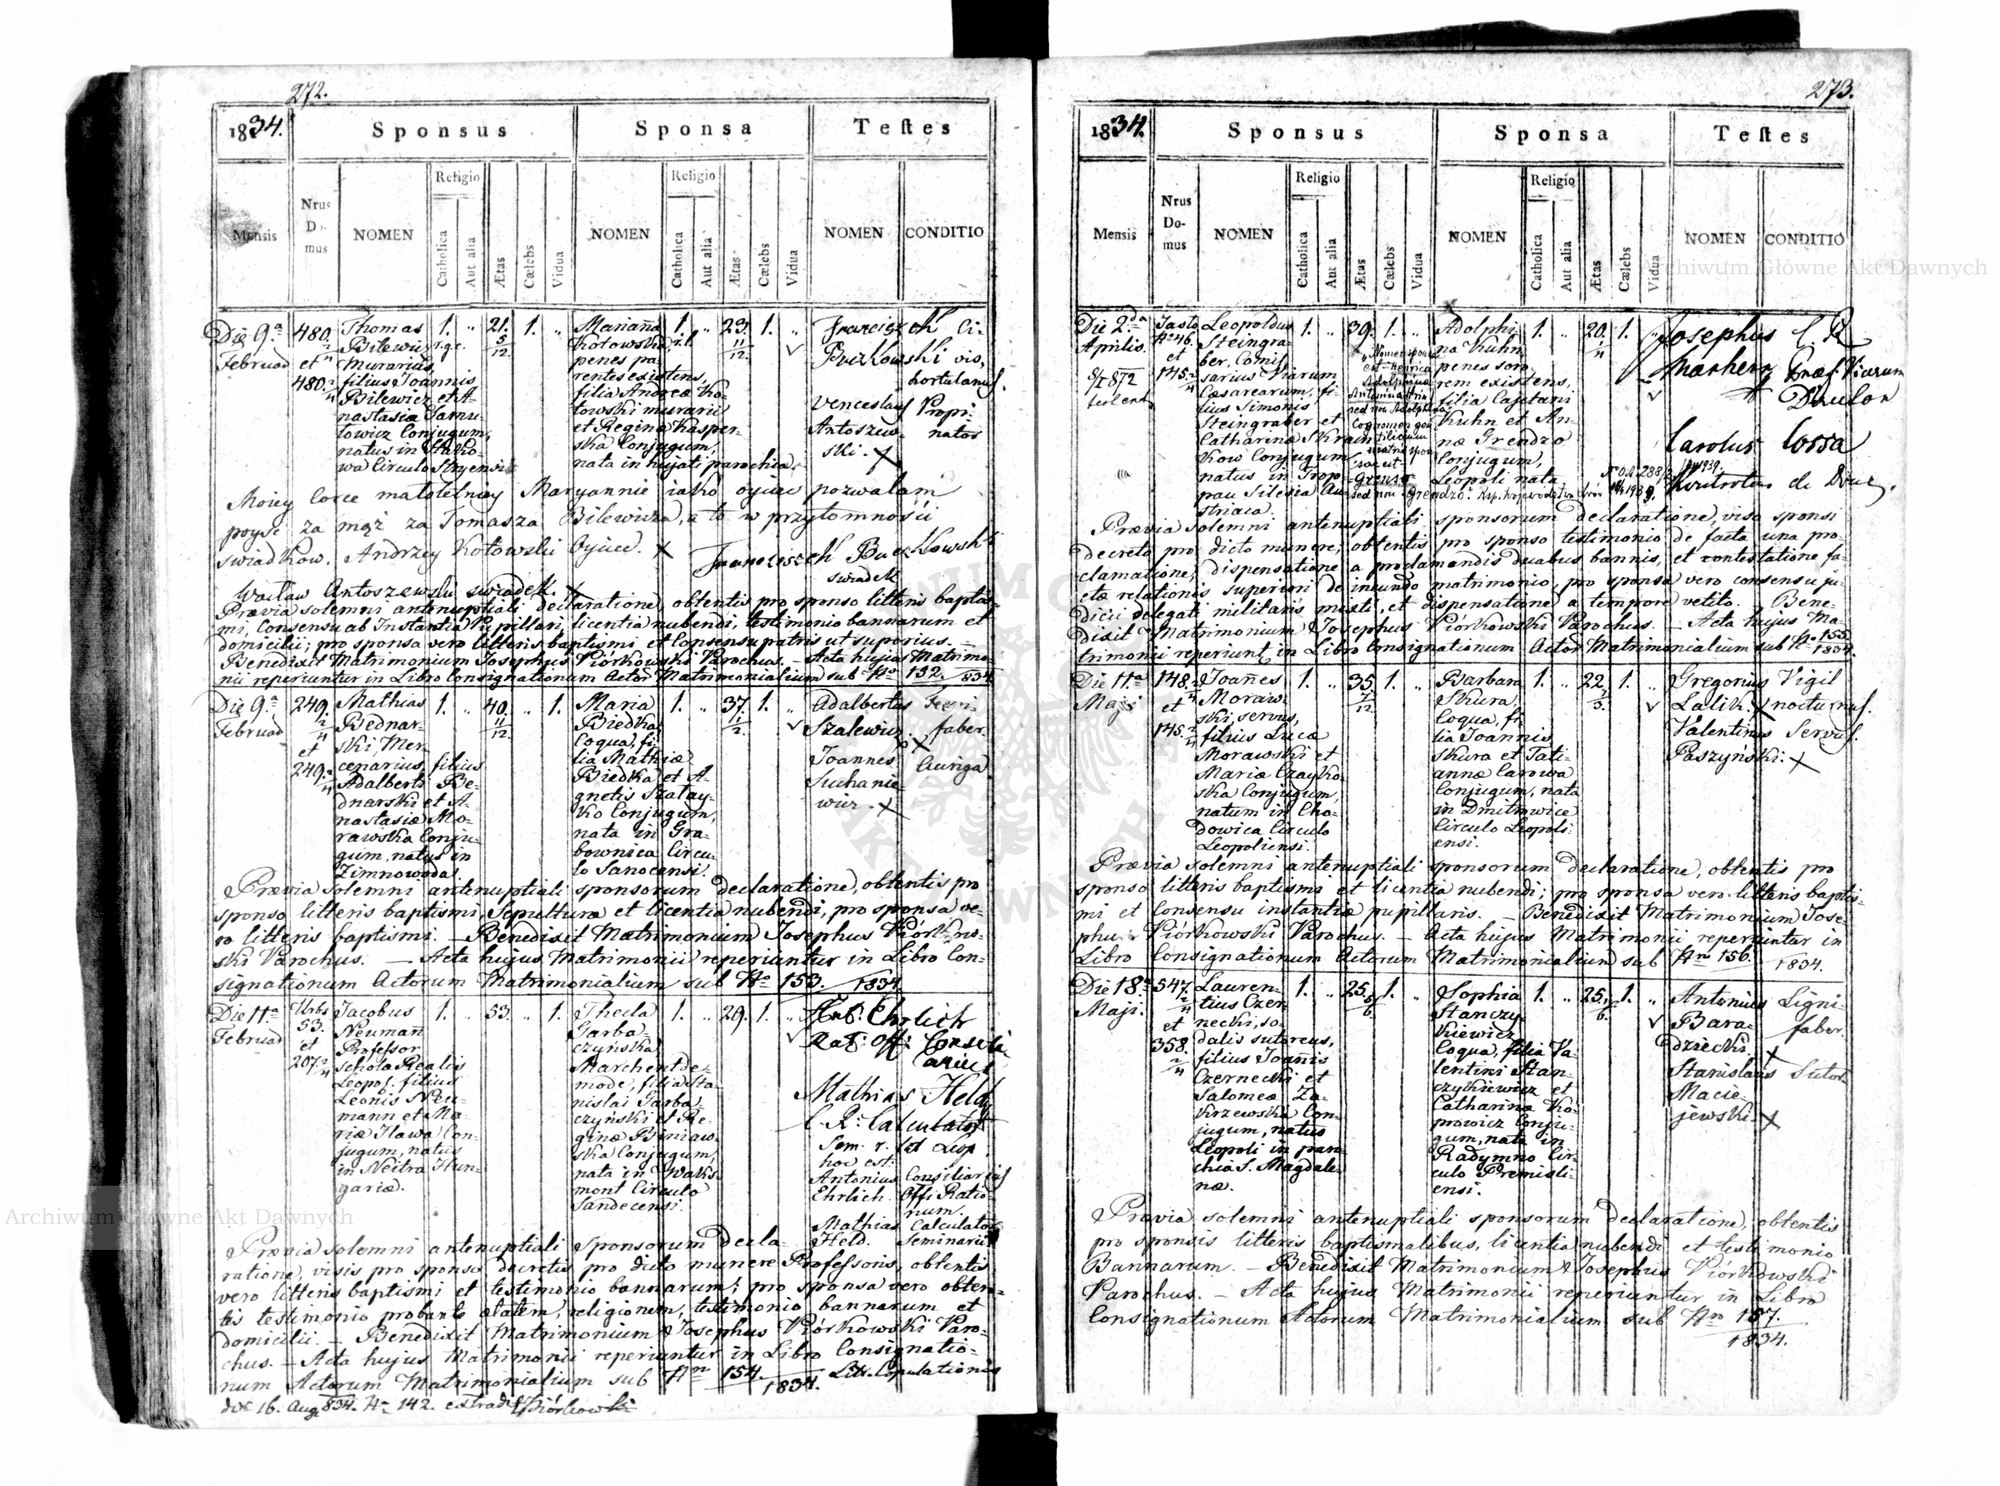 272.
1834.
Sponsus
Sponsa
Testes
Mensis
Nrus Domus
NOMEN
Religio
Catholica
Aut alia
Ætas
Cælebs
Vidua
NOMEN
Religio
Catholica
Aut alia
Ætas
Cælebs
Vidua
NOMEN
CONDITIO
Die 9.a
Februar
480.
et
480.
Thomas
Bilewicz r.g.c.
Murarius,
filius Joannis
Bilewicz et A-
nastasia
towicz Conjugum,
natus in
wa Circulo Stryensi
1.
21.
5/12.
1.
Marianna
Kotowska, r.l.
penes pa-
rentes existens,
filia Andreæ Ko-
towski murarii
et Reginæ Kasper-
ska Conjugum,
nata in hujati parochia.
1.
23.
11/12.
1.
Venceslaus Propi-
Antoszew- nator
ski. X
Moiey Corce małoletniey Maryannie iako oyciec pozwalam
poyść za mąż za Tomasza Bilewicza, a to w przytomności
swiadkow. Andrzey Kotowski Oyciec. X
swiadek
Wacław Antoszewski swiadek. X
Prævia solemni antenuptiali declaratione, obtentis pro sponso litteris baptis-
mi, Consensu ab Instantia Pupillari, licentia nubendi, testimonio bannorum et
domicilii; pro sponsa vero litteris baptismi et Consensu patris ut superius. =
Benedixit Matrimonium Josephus Piórkowski Parochus. – Acta hujus Matrimo-
nii reperiuntur in Libro Consignationum Actor Matrimonialium sub Nro 152. 834
Die 9.a
Februar
249.
et
249.
Mathias
Bednar-
ski Mer-
cenarius, filius
Adalberti Be-
dnarski et A-
nastasiæ Mo-
rawska Conju-
gum, natus in
Zimnowoda.
1.
40.
11/12.
1.
Maria
Biedka
Coqua, fi-
lia Mathiæ
Biedka et A-
gnetis Szatay-
ko Conjugum,
nata in Gra-
bownica Circu-
lo Sanocensi.
1.
37.
1.
Adalbertus
Szalewicz. faber.
X
Joannes Auriga
Suchanie-
wicz. X
Prævia solemni antenuptiali sponsorum declaratione, obtentis pro
sponso litteris baptismi, Sepulturæ et licentia nubendi, pro sponsa ve-
ro litteris baptismi. – Benedixit Matrimonium Josephus Piórkow-
ski Parochus. – Acta hujus Matrimonii reperiuntur in Libro Con-
signationum Actorum Matrimonialium sub Nro 153. 1834.
Die 11.a
Februar
Urbs
53.
et
207.
Jacobus
Neumann
Professor
Schola Realis
Leopol. filius
Leonis Neu-
mann et Ma-
riæ Hawa Con-
jugum, natus
in Neitra Hun-
gariæ.
1.
53.
1.
Thecla
Garba-
czyńska
Marchent de-
mode, filia Sta-
nislai Garba-
czyński et Re-
ginæ Biniaw-
ska Conjugum,
nata in
mont Circulo
Sandecensi.
1.
29.
1.
Ehrlich
Mathias Held
C. R. Calculator
hoc est:
Antonius Consiliarius
Ehrlich. Offi Ratio-
num.
Mathias Calculator
Held. Seminarii
Prævia solemni antenuptiali sponsorum decla-
ratione, visis pro sponso decretis pro dicto munere Professoris, obtentis
vero litteris baptismi et testimonio bannorum; pro sponsa vero obten-
tis testimonio probante ætatem, religionem, testimonio bannorum et
domicilii. – Benedixit Matrimonium Josephus Piórkowski Paro-
chus. – Acta hujus Matrimonii reperiuntur in Libro Consignatio-
num Actorum Matrimonialium sub Nro 154. 1834. Litt. Copulationis
16. Aug 834. Nr 142. extradit Piórkowski
273.
1834.
Sponsus
Sponsa
Testes
Mensis
Nrus Domus
NOMEN
Religio
Catholica
Aut alia
Ætas
Cælebs
Vidua
NOMEN
Religio
Catholica
Aut alia
Ætas
Cælebs
Vidua
NOMEN
CONDITIO
Die 2.da
Aprilis.
et
145.
Leopoldus
Steingra-
ber, Comis-
sarius Viarum
Cæsarearum, fi-
lius Simonis
Steingraber et
Catharinæ Skrain-
kow Conjugum
natus in Trop-
pau Silesia Au-
striaca.
1.
39.
1.
Nomen sponsæ
est Henrica
Adolphina
Antonina
sed non Adolphina
Adolphi-
na Kuhn,
penes soro-
rem existens,
filia Cajetani
Kuhn et An-
næ Grendzo
Conjugum,
Leopoli nata
1.
20.
1.
Josephus C. R.
Marherz Præf. Viarum
Carolus Cossa
Prævia solemni antenuptiali sponsorum declaratione, viso sponsi
decreto pro dicto munere, obtentis pro sponso testimonio de facta una pro-
clamatione, dispensatione a proclamandis duabus bannis, et contestatione fa-
ctæ relationis superiori de ineundo matrimonio, pro sponsa vero consensu ju-
dicii delegati militaris mixti, et dispensatione a tempore vetito. Bene-
dixit Matrimonium Josephus Piórkowski Parochus. – Acta hujus Ma-
trimonii reperiunt in Libro Consignationum Actor Matrimonialium sub Nro 155. 1834.
Die 11.a
Maji
148.
et
145.
Joannes
Moraw-
ski, servus,
filius Lucæ
Morawski et
Mariæ Czayko-
ska Conjugum,
natum in Cho-
dowica Circulo
Leopoliensi.
1.
35.
7/12
1.
Barbara
Skura,
Coqua, fi-
lia Joannis
Skura et Tati-
annæ Carowa
Conjugum, nata
in Dmitrowice
Circulo Leopoli-
ensi.
1.
22.
1.
Gregorius Vigil
Lalik. X nocturnus.
Valentinus Servus.
Paszyński. X
Prævia solemni antenuptiali sponsorum declaratione, obtentis pro
sponso litteris baptismi et licentia nubendi; pro sponsa vero litteris baptis-
mi et Consensu instantiæ pupillaris. – Benedixit Matrimonium Jose-
phus Piórkowski Parochus. – Acta hujus Matrimonii reperiuntur in
Libro Consignationum Actorum Matrimonialium sub Nro 156. 1834.
Die 18.a
Maji.
547.
et
358.
Lauren-
tius Czer-
necki, so-
dalis sutoreus,
filius Joannis
Czernecki et
Salomeæ Za-
krzewska Con-
jugum, natus
Leopoli in paro-
chia S. Magdale-
næ.
1.
25.
1.
Sophia
Stanczy-
kiewicz
Coqua, filia Va-
lentini Stan-
czykiewicz et
Catharinæ Ko-
prowicz Conju-
gum, nata in
Radymno Cir-
culo Premisli-
ensi.
1.
25.
1.
Antonius Ligni-
Bara- faber.
dziecki. X
Stanislaus Sutor
Macie-
jewski. X
Prævia solemni antenuptiali sponsorum declaratione, obtentis
pro sponsis litteris baptismalibus, licentia nubendi et testimonio
Bannorum. – Benedixit Matrimonium Josephus Piórkowski
Parochus. – Acta hujus Matrimonii reperiuntur in Libro
Consignationum Actorum Matrimonialium sub Nro 157.
1834.
Archiwum Główne Akt Dawnych
Archiwum Główne Akt Dawnych